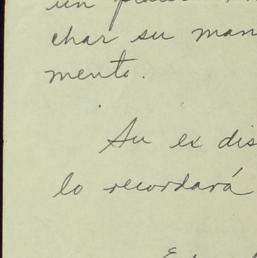 un
char su man
mento.
Su ex dis
lo recordará